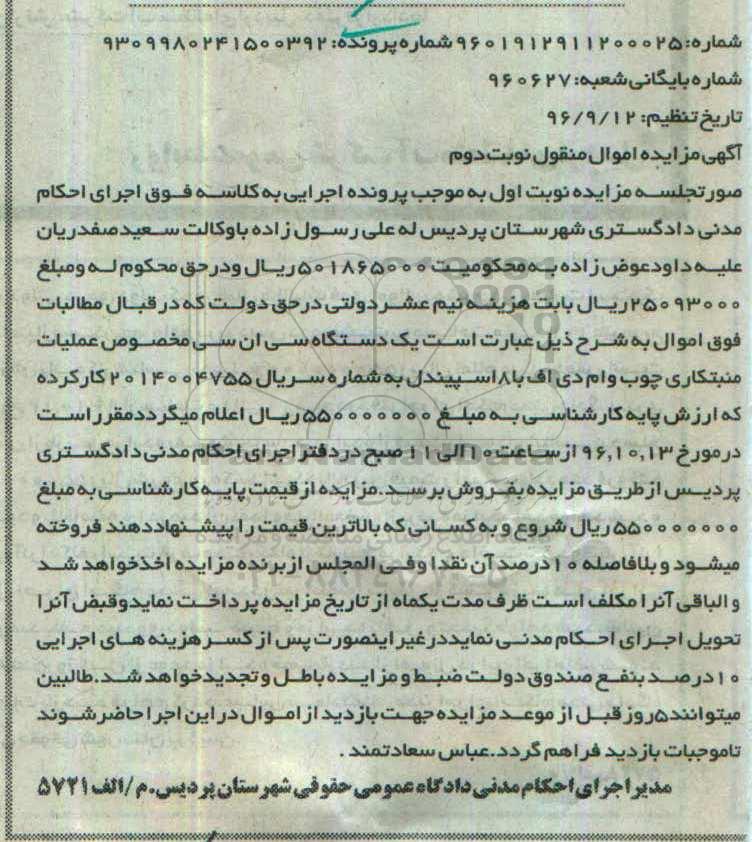 شماره: ۹۶۰۱۹۱۲۹۱۱۲۰۰۰۲۵ شماره پرونده: ۹۳۰۹۹۸۰۲۴۱۵۰۰۳۹۲
شماره بایگانی شعبه: ۹۶۰۶۲۷
تاریخ تنظیم: ۹۶/۹/۱۲
آگهی مزایده اموال منقول نوبت دوم
صورتجلسه مزایده نوبت اول به موجب پرونده اجرایی به کلاسه فوق اجرای احکام
مدنی دادگستری شهرستان پردیس له علی رسول زاده باوکالت سعیدصفدریان
علیه داودعوض زاده به محکومیت ۵۰۱۸۶۵۰۰۰ ریال ودرحق محکوم له ومبلغ
۲۵۰۹۳۰۰۰ ریال بابت هزینه نیم عشر دولتی درحق دولت که در قبال مطالبات
فوق اموال به شرح ذیل عبارت است یک دستگاه سی ان سی مخصوص عملیات
منبتکاری چوب وام دی اف با۸اسپیندل به شماره سریال ۲۰۱۴۰۰۴۷۵۵ کارکرده
که ارزش پایه کارشناسی به مبلغ ۵۵۰۰۰۰۰۰۰ ریال اعلام میگرددمقرر است
درمورخ ۹۶,۱۰,۱۳ ازساعت ۱۰الی ۱۱ صبح دردفتر اجرای احکام مدنی دادگستری
پردیس ازطریق مزایده بفروش برسد.مزایده ازقیمت پایه کارشناسی به مبلغ
۵۵۰۰۰۰۰۰۰ ریال شروع و به کسانی که بالاترین قیمت را پیشنهاددهند فروخته
میشود و بلافاصله ۱۰درصد آن نقدا وفی المجلس ازبرنده مزایده اخذخواهد شد
و الباقی آنرا مکلف است ظرف مدت یکماه از تاریخ مزایده پرداخت نمایدوقبض آنرا
تحویل اجرای احکام مدنی نمایددرغیر اینصورت پس از کسر هزینه های اجرایی
۱۰درصد بنفع صندوق دولت ضبط و مزایده باطل و تجدیدخواهد شد.طالبین
میتوانند۵روز قبل از موعد مزایده جهت بازدید از اموال در این اجرا حاضر شوند
تاموجبات بازدید فراهم گردد.عباس سعادتمند .
مدیر اجرای احکام مدنی دادگاه عمومی حقوقی شهرستان پردیس.م/الف ۵۷۲۱